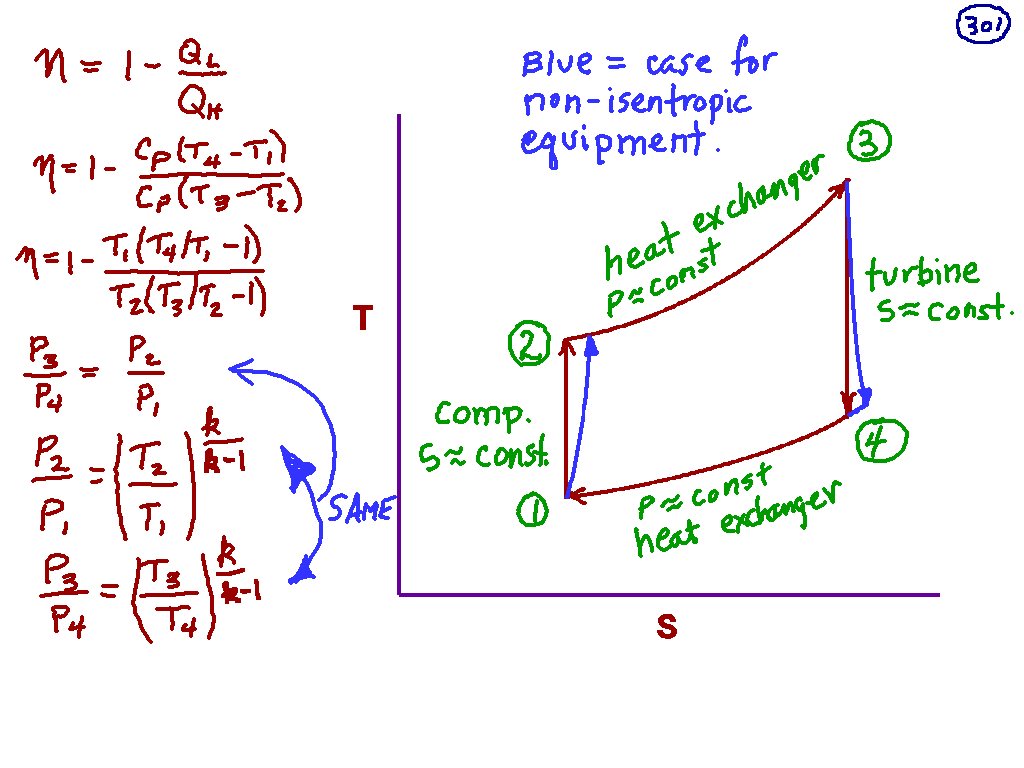 301
η = 1 - Q_L/Q_H
η = 1 - C_P(T_4-T_1)/C_P(T_3-T_2)
η = 1 - T_1(T_4/T_1 -1)/T_2(T_3/T_2 -1)
P_3/P_4 = P_2/P_1
P_2/P_1 = (T_2/T_1)^(k/k-1)
P_3/P_4 = (T_3/T_4)^(k/k-1)
SAME
Blue = case for
non-isentropic
equipment.
3
heat exchanger
P≈const
turbine
S≈const.
T
2
comp.
S≈const.
4
1
P≈const
heat exchanger
S